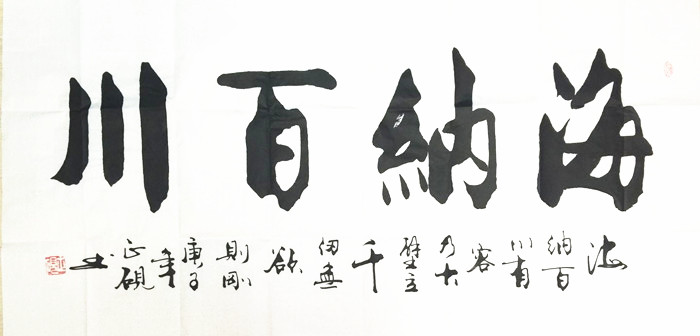 海納百川
海納百川有容乃大壁立千仞無欲則剛庚子年正硯书